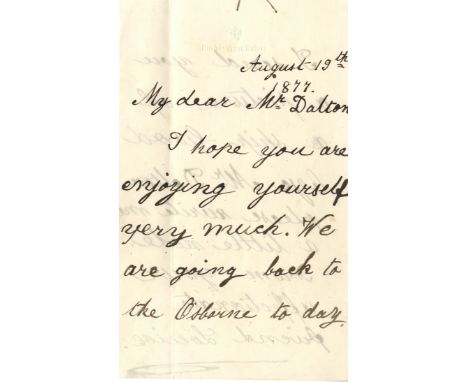 August 19th
1877.
My dear Mr Dalton
I hope you are
enjoying yourself
very much. We
are going back to
the Osborne to day.